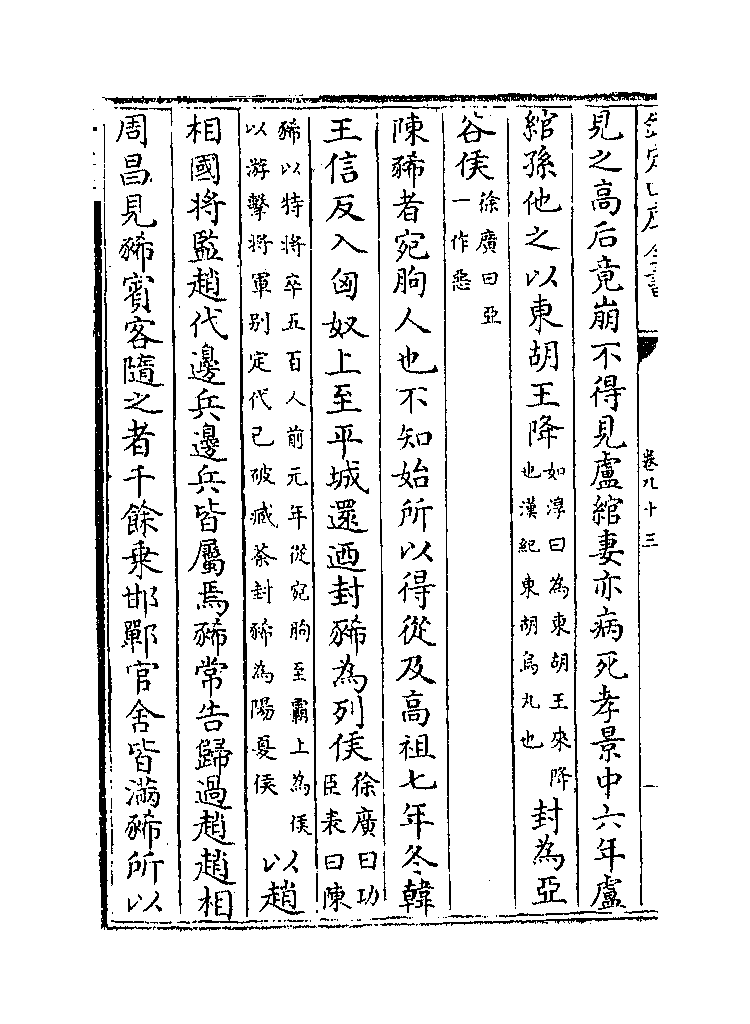 欽定四庫全書
卷九十三
見之高后竟崩不得見盧綰妻亦病死孝景中六年盧
綰孫他之以東胡王降如淳曰為東胡王來降也漢紀東胡烏丸也封為亞
谷侯徐廣曰亞一作惡
陳豨者宛朐人也不知始所以得從及高祖七年冬韓
王信反入匈奴上至平城還迺封豨為列侯徐廣曰功臣表曰陳
豨以特將卒五百人前元年從宛朐至霸上為侯以游擊將軍别定代已破臧荼封豨為陽夏侯以趙
相國將監趙代邊兵邊兵皆屬焉豨常告歸過趙趙相
周昌見豨賓客隨之者千餘乘邯鄲官舍皆滿豨所以